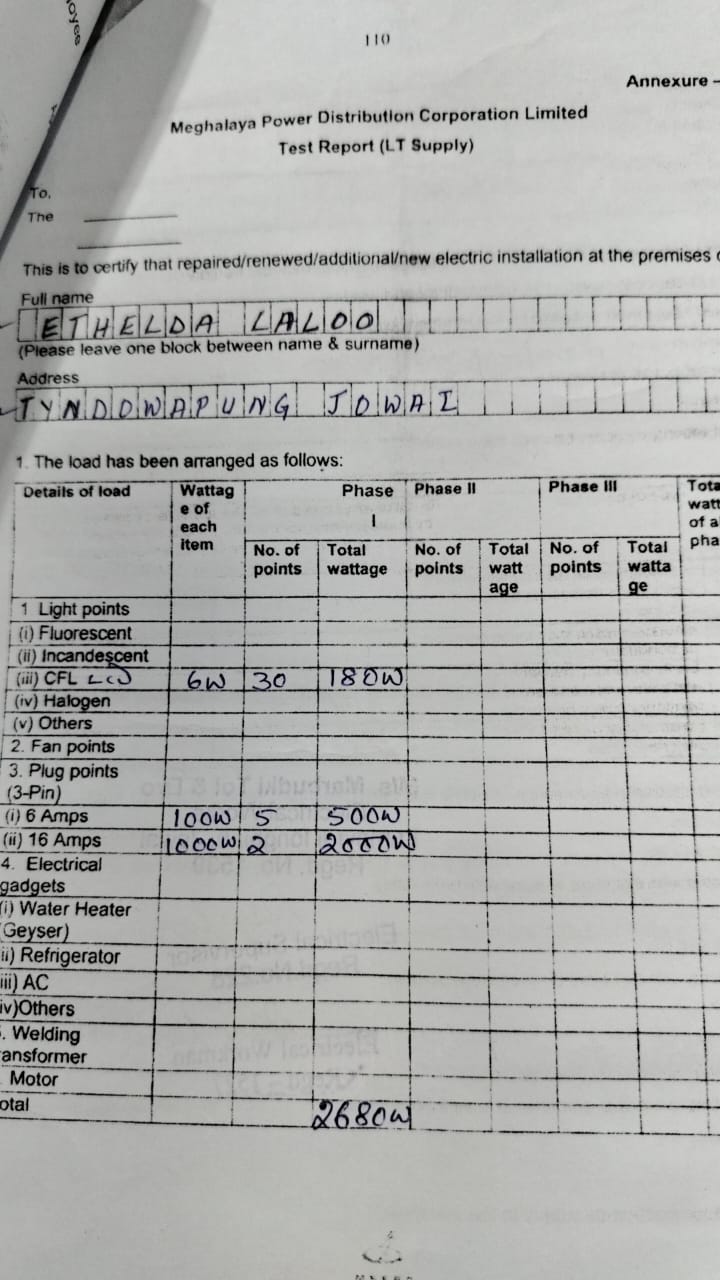 110
Annexure -
Meghalaya Power Distribution Corporation Limited
Test Report (LT Supply)
To,
The
This is to certify that repaired/renewed/additional/new electric installation at the premises
Full name
ETHELDA LALOO
(Please leave one block between name & surname)
Address
TYNDOWAPUNG JOWAI
1. The load has been arranged as follows:
Details of load Wattag e of each item Phase I Phase II Phase III Tota watt of a pha
No. of points Total wattage No. of points Total watt age No. of points Total watta ge
1 Light points
(i) Fluorescent
(ii) Incandescent
(iii) CFL LED 6W 30 180W
(iv) Halogen
(v) Others
2. Fan points
3. Plug points
(3-Pin)
(i) 6 Amps 100W 5 500W
(ii) 16 Amps 1000W 2 2000W
4. Electrical
gadgets
(i) Water Heater
(Geyser)
ii) Refrigerator
iii) AC
iv)Others
. Welding
ansformer
Motor
otal 2680W